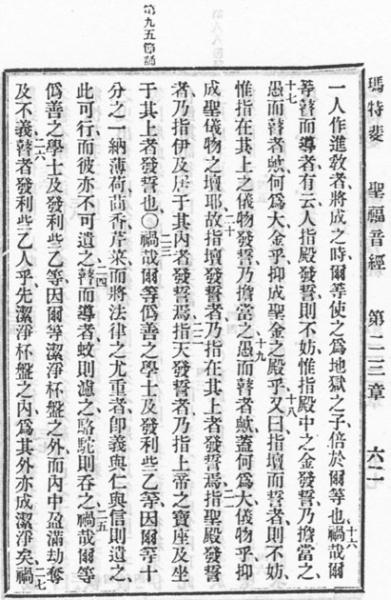 第九五節註
瑪特斐 聖福音經 第二三章 六二
一人作進教者、將成之時、爾等使之爲地獄之子、倍於爾等也、禍哉爾 十六
等瞽而導者、有云人指殿發誓則不妨、惟指殿中之金發誓、乃擔當之、
十七 愚而瞽者歟、何爲大、金乎、抑成聖金之殿乎、又曰指壇而誓者則不妨、 十八
惟指在其上之儀物發誓、乃擔當之、愚而瞽者歟、蓋何爲大、儀物乎、抑 十九
成聖儀物之壇耶、故指壇發誓者、乃指在其上者發誓焉、指聖殿發誓 二十 二一
者、乃指伊及居于其內者發誓焉、指天發誓者、乃指上帝之寶座及坐 二二
于其上者發誓也、〇禍哉爾等僞善之學士及發利些乙等、因爾等十 二三
分之一納薄荷茴香芹菜、而將法律之尤重者、卽義與仁與信則遺之、
此可行而彼亦不可遺之、瞽而導者、蚊則濾之、駱駝則吞之、禍哉爾等 二四 二五
僞善之學士及發利些乙等、因爾等潔淨杯盤之外、而內中盈滿劫奪
及不義、瞽者發利些乙人乎、先潔淨杯盤之內、爲其外亦成潔淨矣、禍 二六 二七